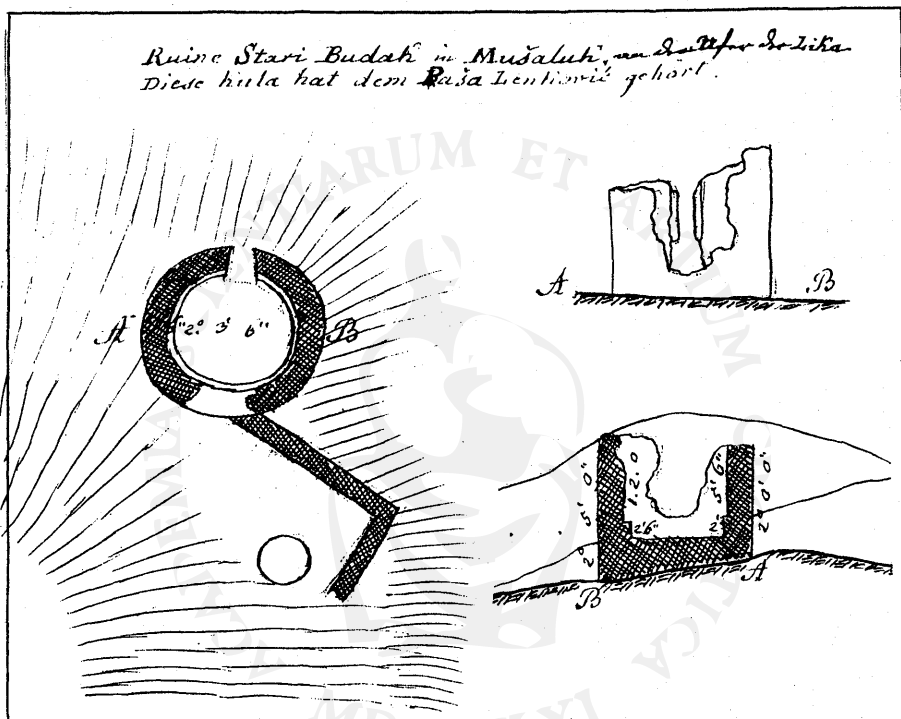 Ruine Stari Budak in Mušaluk, an der Ufer der Lika
Diese kula hat dem Paša Lenković gehört.
A 2° 3' 6" B
A B
2° 5' 0" 1. 2. 0 2'6" 2° 5' 6" 2° 0' 0"
B A